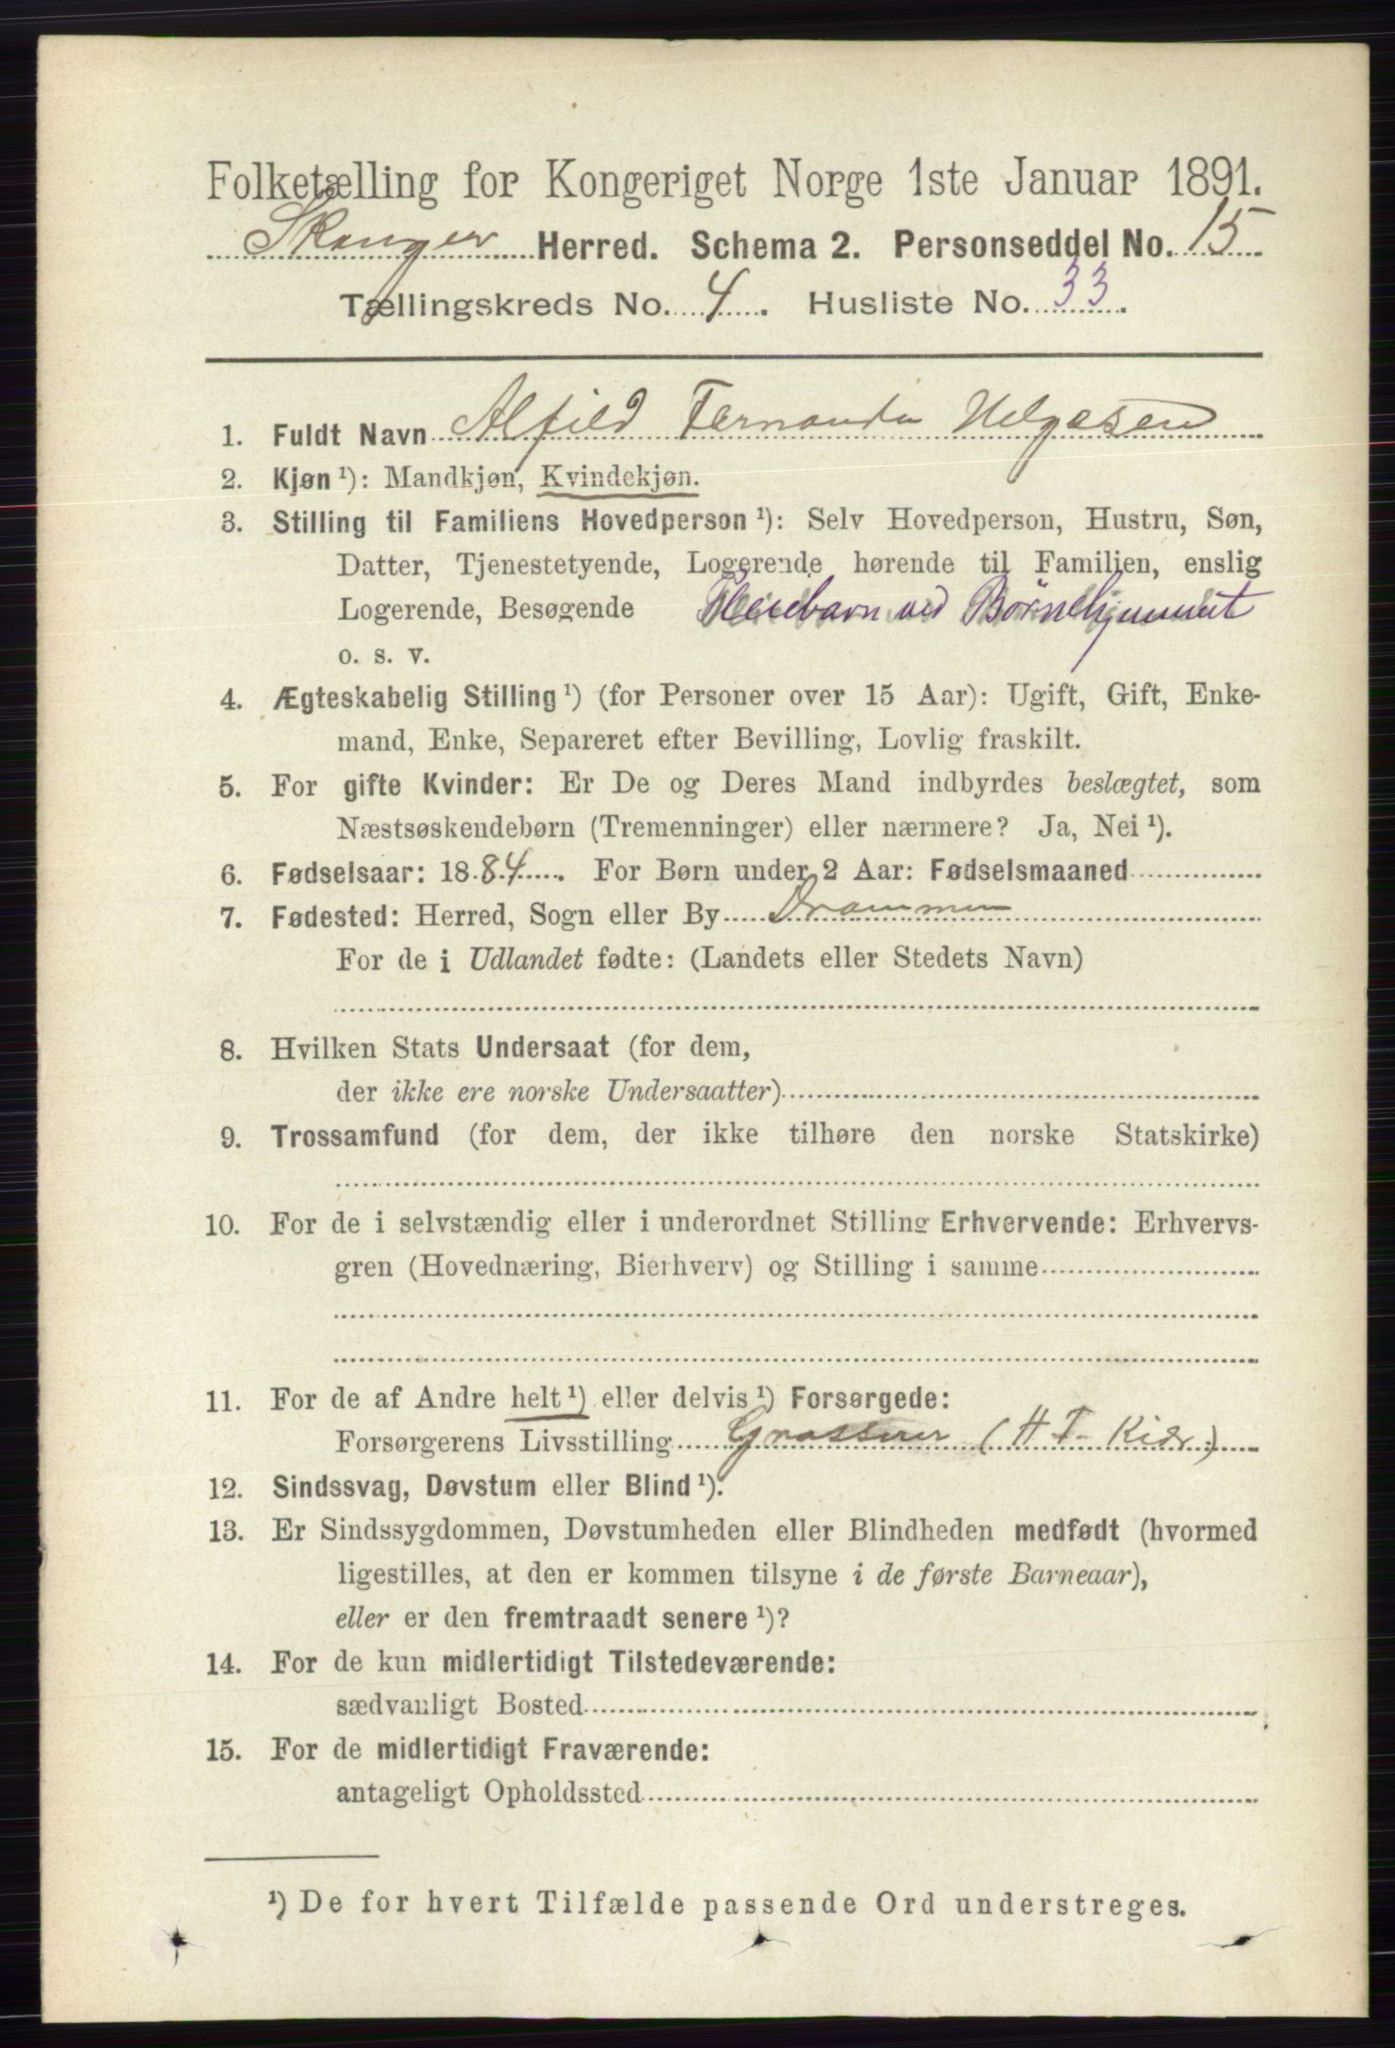 Folketælling for Kongeriget Norge 1ste Januar 1891.
Skouger Herred. Schema 2. Personseddel No. 15
Tællingskreds No. 4. Husliste No. 33.
1. Fuldt Navn Alfild Fernanda Helgesen
2. Kjøn ¹): Mandkjøn, Kvindekjøn.
3. Stilling til Familiens Hovedperson ¹): Selv Hovedperson, Hustru, Søn,
Datter, Tjenestetyende, Logerende hørende til Familien, enslig
Logerende, Besøgende Pleiebarn ved Børnehjemmet
o. s. v.
4. Ægteskabelig Stilling ¹) (for Personer over 15 Aar): Ugift, Gift, Enke-
mand, Enke, Separeret efter Bevilling, Lovlig fraskilt.
5. For gifte Kvinder: Er De og Deres Mand indbyrdes beslægtet, som
Næstsøskendebørn (Tremenninger) eller nærmere? Ja, Nei ¹).
6. Fødselsaar: 1884. For Børn under 2 Aar: Fødselsmaaned
7. Fødested: Herred, Sogn eller By Drammen
For de i Udlandet fødte: (Landets eller Stedets Navn)
8. Hvilken Stats Undersaat (for dem,
der ikke ere norske Undersaatter)
9. Trossamfund (for dem, der ikke tilhøre den norske Statskirke)
10. For de i selvstændig eller i underordnet Stilling Erhvervende: Erhvervs-
gren (Hovednæring, Bierhverv) og Stilling i samme
11. For de af Andre helt ¹) eller delvis ¹) Forsørgede:
Forsørgerens Livsstilling Grosserer (H T Kiær)
12. Sindssvag, Døvstum eller Blind ¹).
13. Er Sindssygdommen, Døvstumheden eller Blindheden medfødt (hvormed
ligestilles, at den er kommen tilsyne i de første Barneaar),
eller er den fremtraadt senere ¹)?
14. For de kun midlertidigt Tilstedeværende:
sædvanligt Bosted
15. For de midlertidigt Fraværende:
antageligt Opholdssted
¹) De for hvert Tilfælde passende Ord understreges.